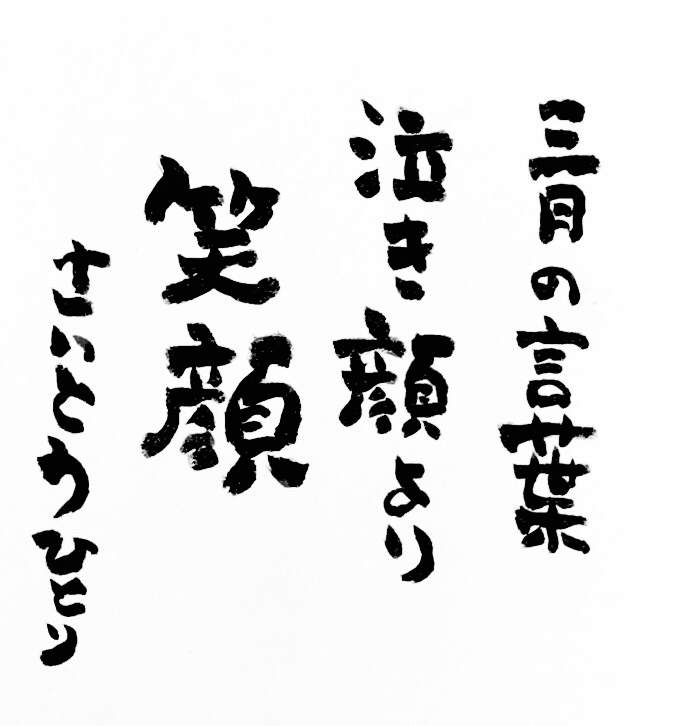 三月の言葉
泣き顔より
笑顔
さいとうひとり